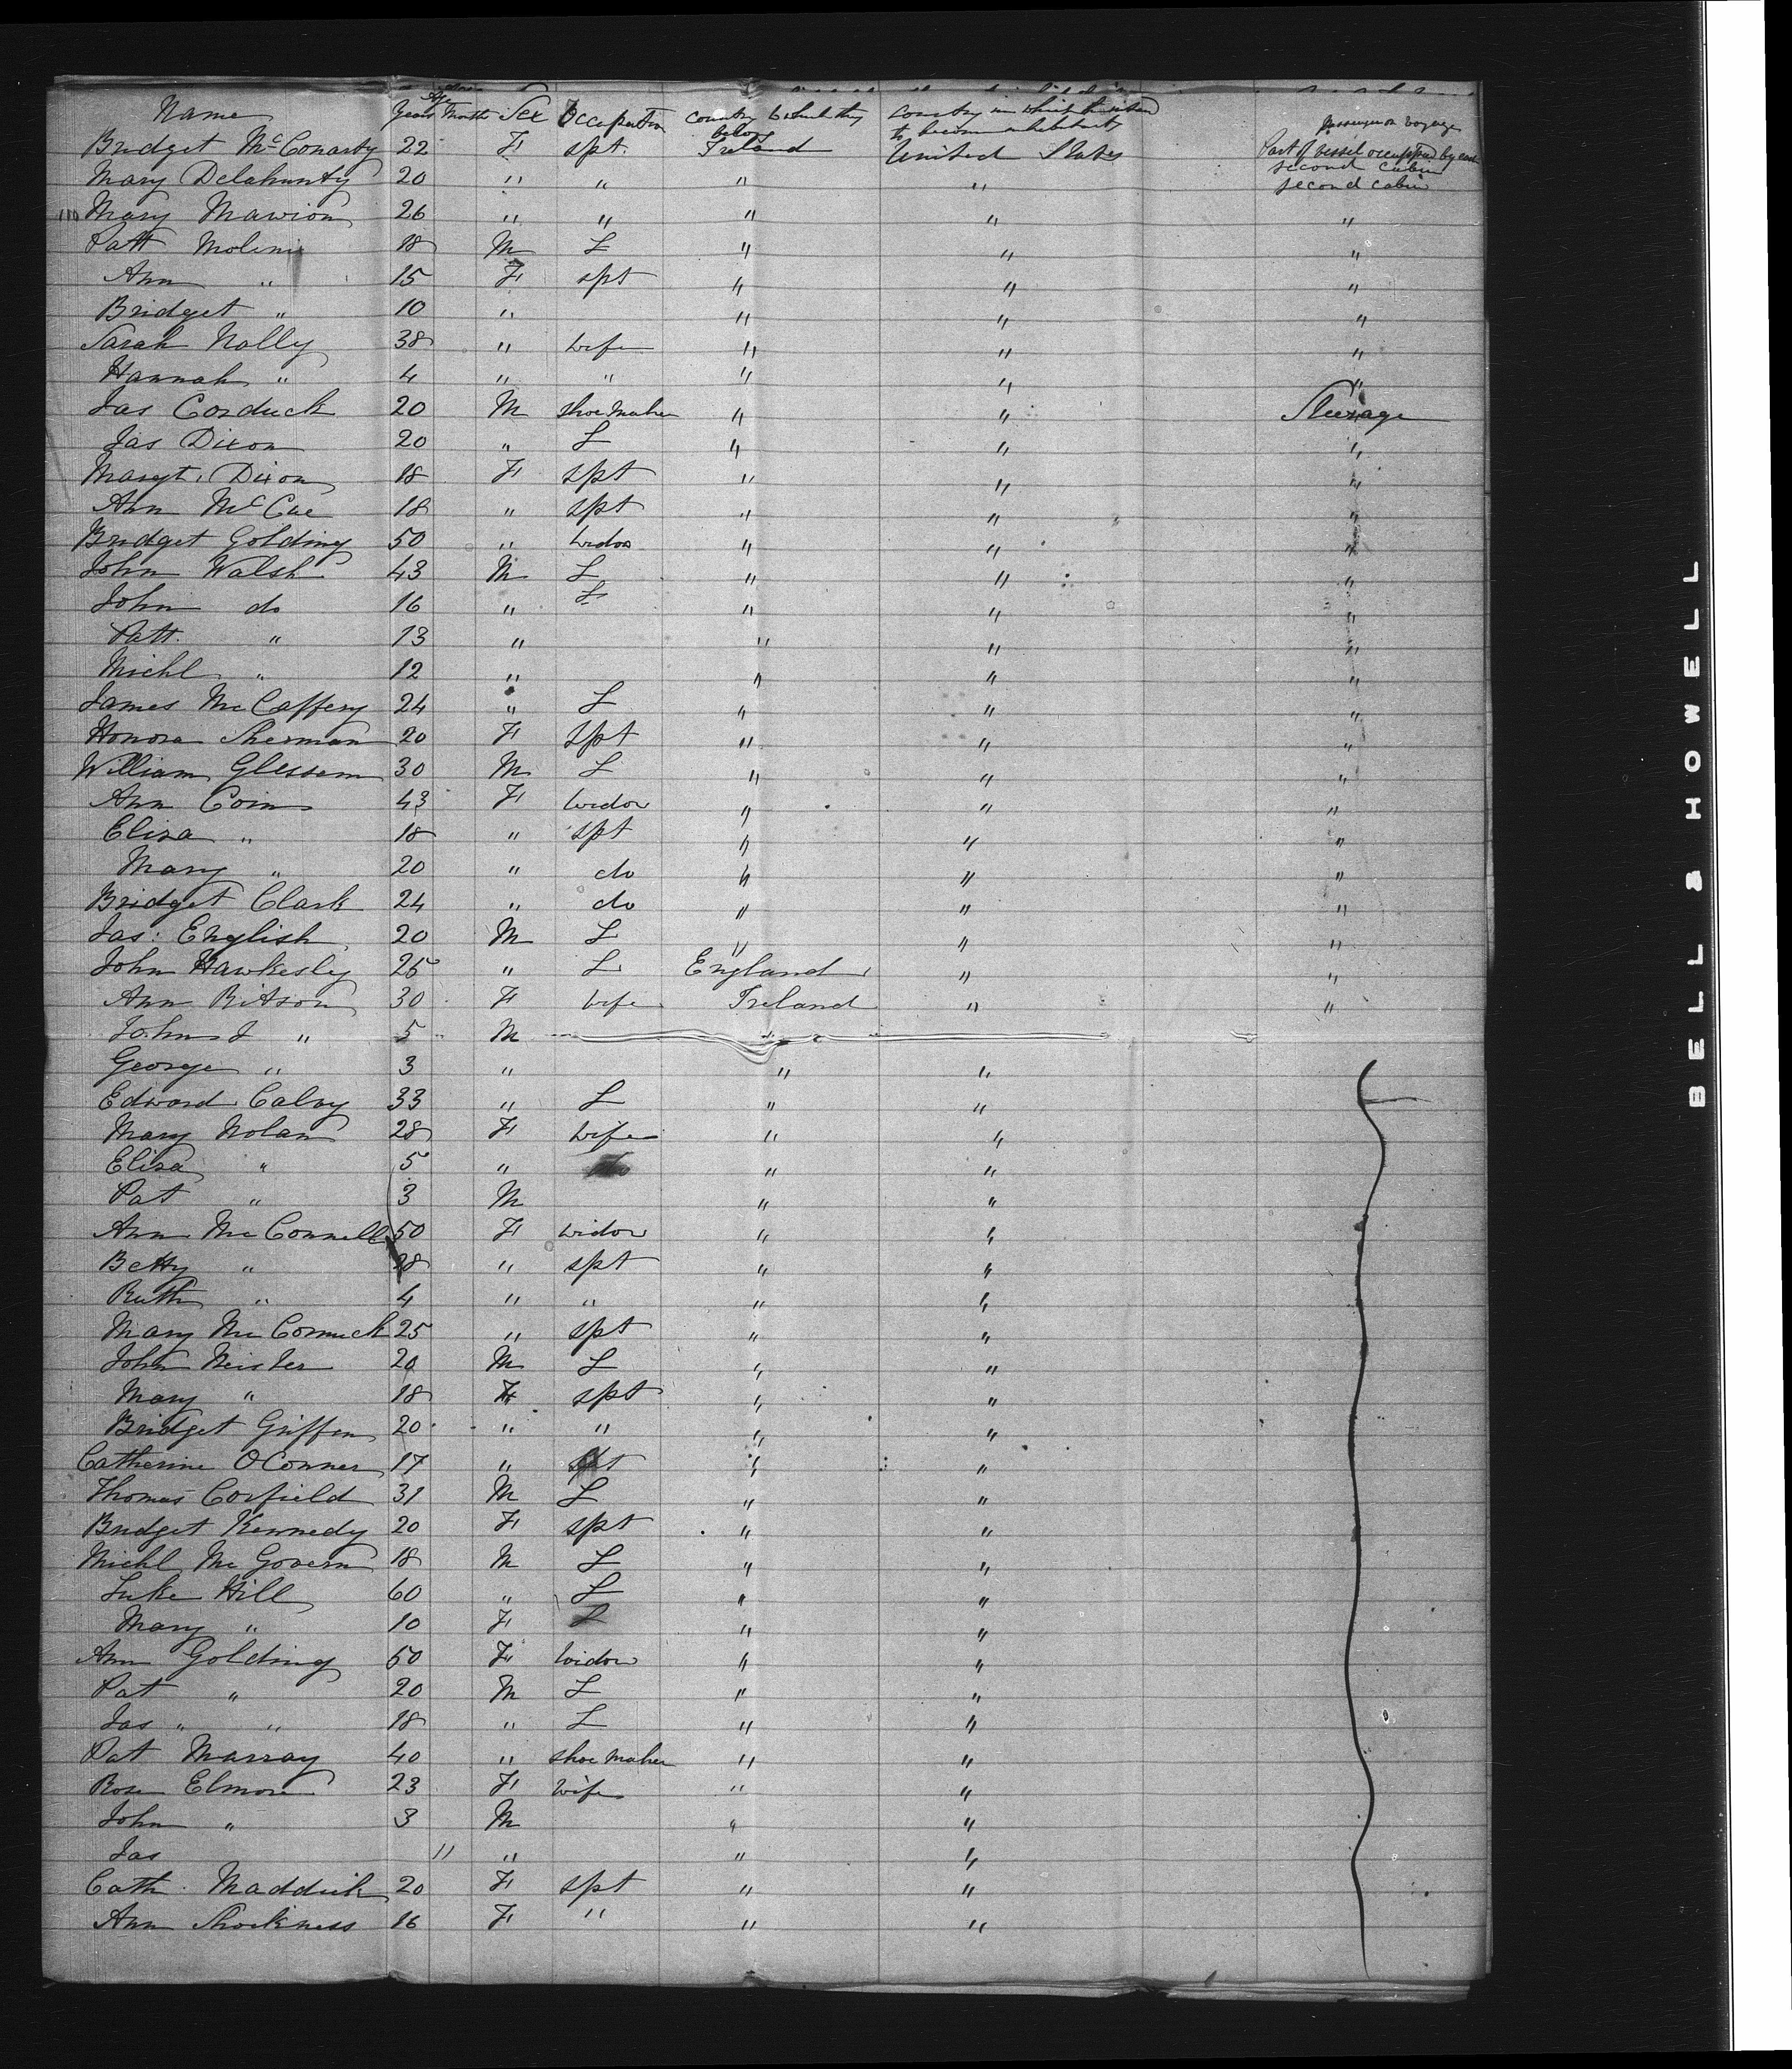 Name Age Years Month Sex Occupation Country to which they belong Country in which they intend to become inhabitants Part of vessel occupied by each passenger on voyage
Bridget McConarty 22 F spt. Ireland United States second cabin
Mary Delahunty 20 " " " " second cabin
110 Mary Mawion 26 " " " " "
Patt Molini 18 M L " " "
Ann " 15 F spt " " "
Bridget " 10 " " " "
Sarah Nolly 38 " wife " " "
Hannah " 4 " " " " "
Jas Corduck 20 M shoe maker " " Steerage
Jas Dixon 20 " L " " "
Margt. Dixon 18 F spt " " "
Ann McCue 18 " spt " " "
Bridget Golding 50 " widow " " "
John Walsh 43 M L " " "
John do 16 " L " " "
Patt. " 13 " " " "
Michl " 12 " " " "
James McCaffery 24 " L " " "
Honora Sherman 20 F spt " " "
William Glessem 30 M L " " "
Ann Coin 43 F widow " " "
Eliza " 18 " spt " " "
Mary " 20 " do " " "
Bridget Clark 24 " do " " "
Jas: English 20 M L " " "
John Hawkesly 25 " L England " "
Ann Ritson 30 F wife Ireland " "
John J " 5 M "
George " 3 " " "
Edward Calvy 33 " L " "
Mary Nolan 28 F wife " "
Eliza " 5 " " "
Pat " 3 M " "
Ann McConnell 50 F widow " "
Betty " 28 " spt " "
Ruth " 4 " " " "
Mary McCormick 25 " spt " "
John Neister 20 M L " "
Mary " 18 F spt " "
Bridget Griffen 20 " " " "
Catherine OConner 17 " spt " "
Thomas Corfield 31 M L " "
Bridget Kennedy 20 F spt " "
Michl McGovern 18 M L " "
Luke Hill 60 " L " "
Mary " 10 F L " "
Ann Golding 50 F widow " "
Pat " 20 M L " "
Jas " " 18 " L " "
Pat Murray 40 " shoe maker " "
Rose Elmore 23 F wife " "
John " 3 M " "
Jas 11 " " "
Cath. Maddick 20 F spt " "
Ann Shockness 16 F " " "
BELL & HOWELL